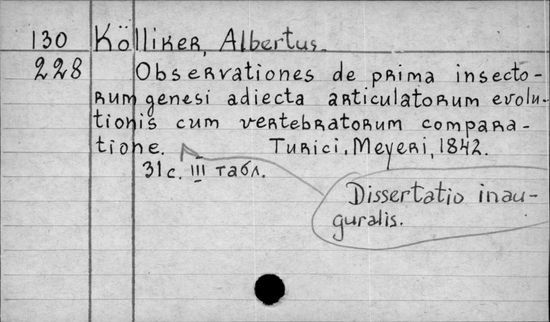 130 Kölliker, Albertus.
228 Observationes de prima insecto-
rum genesi adiecta articulatorum evolu-
tionis cum vertebratorum compara-
tione. Turici, Meyeri, 1842.
31 с. III табл.
Dissertatio inau-
guralis.